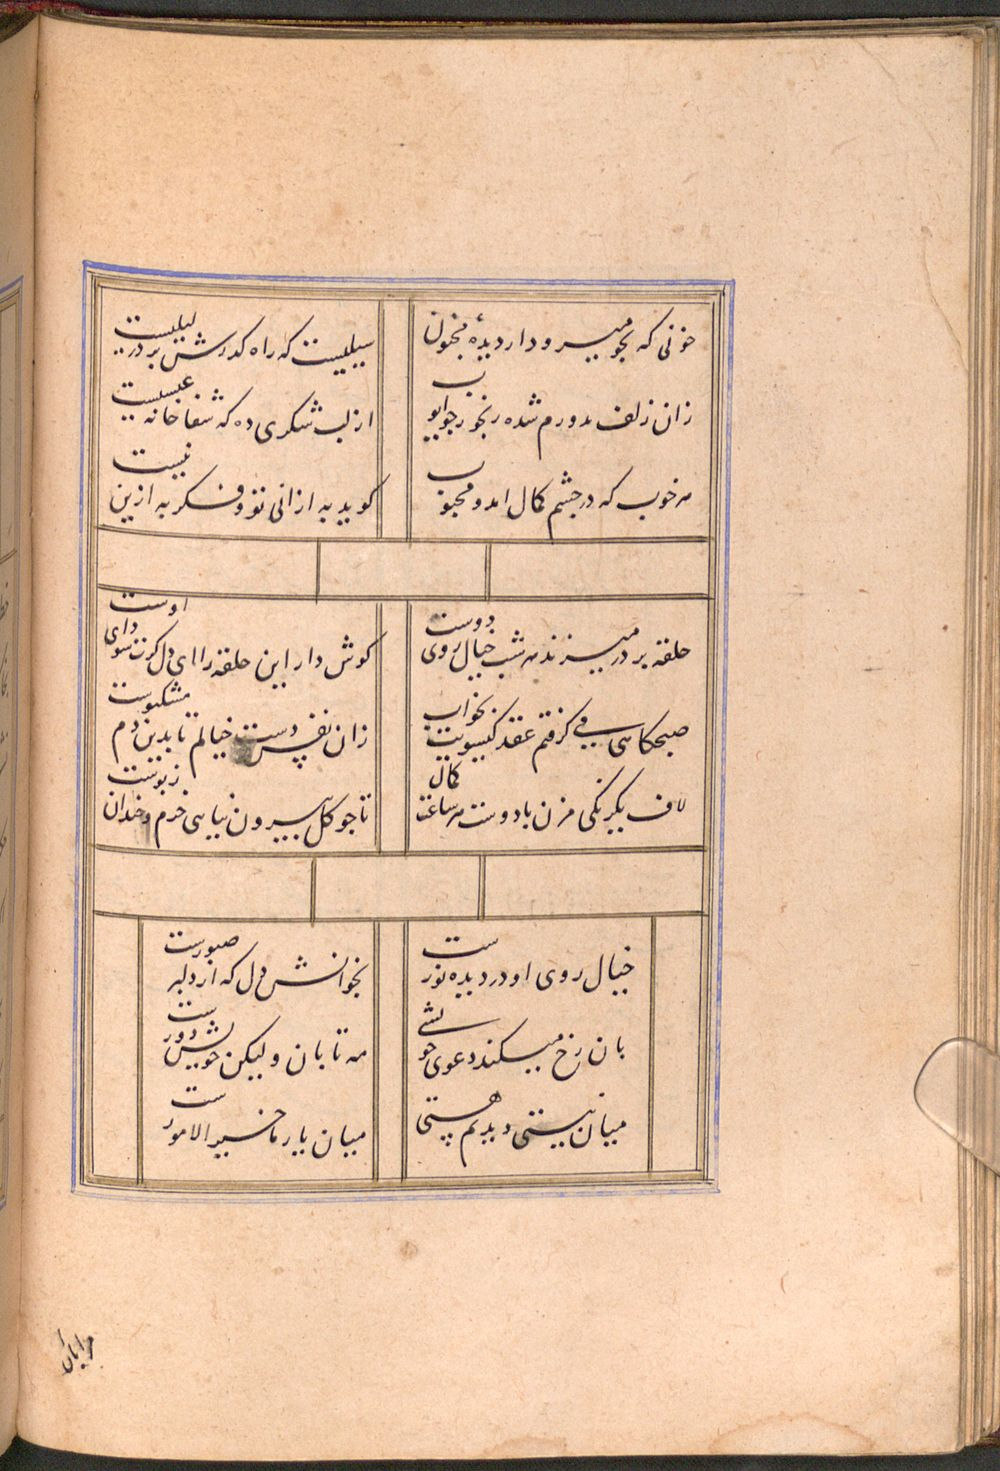 خونی که بجو میرود از دیدهٔ مجنون
سیلیست که راه گذرش بر در لیلیست
زان زلف بدورم شده رنجور جوابو
از لب شکری ده که شفاخانه عیسیست
مه خوب که در چشم کمال امد و محبوب
کوید به از انی تو و فکر به ازین نیست
حلقه بر در میزند هر شب خیال روی دوست
کوش دار این حلقه را ای دل کرت سودای اوست
صبحکاهی می گرفتم عقد کیسویت بخواب
زان نفس دست خیالم تا بدین دم مشکبوست
لاف یکرنکی مزن با دوست هر ساعت کمال
تا جو کل بیرون نیایی خرم و خندان ز بوست
خیال روی او در دیده نورست
بخوانش دل که از دلبر صبورست
بان رخ میکند دعوی خویشی
مه تابان و لیکن خویش دورست
میان نیستی و دیدیم هستی
میان یار ما خیر الامورست